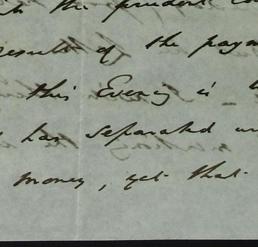 the prudent
results of the paym
this Evening is
has separated un
money, yet that